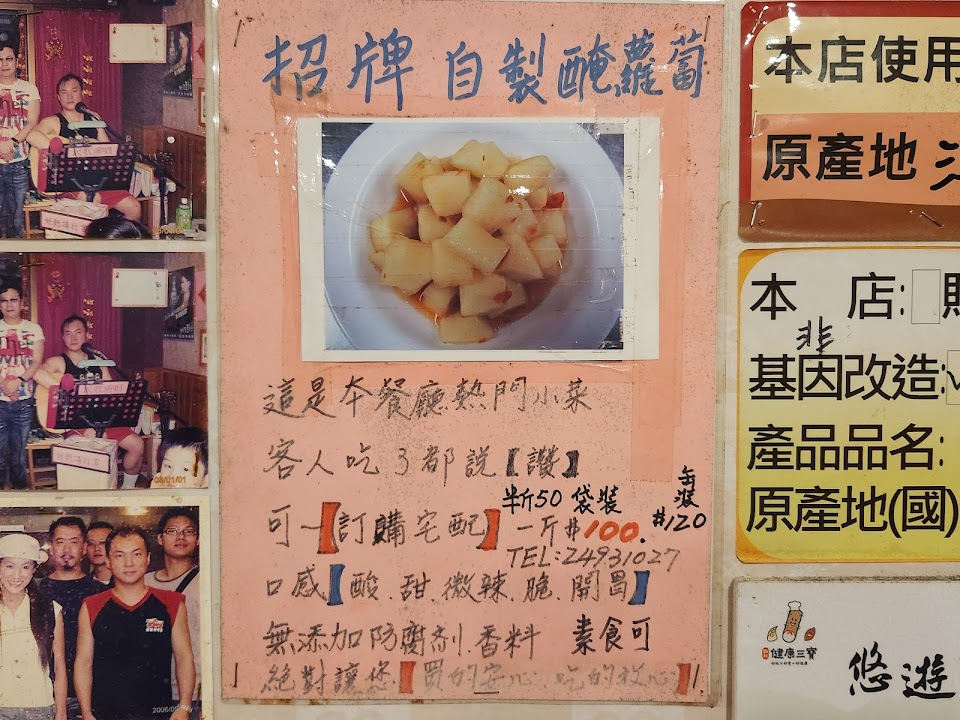 招牌 自製醃蘿蔔
這是本餐廳熱門小菜
客人吃了都說【讚】
可【訂購宅配】
半斤50 袋裝
一斤#100.
缶裝
#120
TEL:24931027
口感【酸.甜.微辣.脆.開胃】
無添加防腐劑.香料 素食可
絕對讓您【買的安心 吃的放心】
本店使用
原產地
本 店:
非
基因改造:
產品品名:
原產地(國)
健康三寶
悠遊
08/01/01